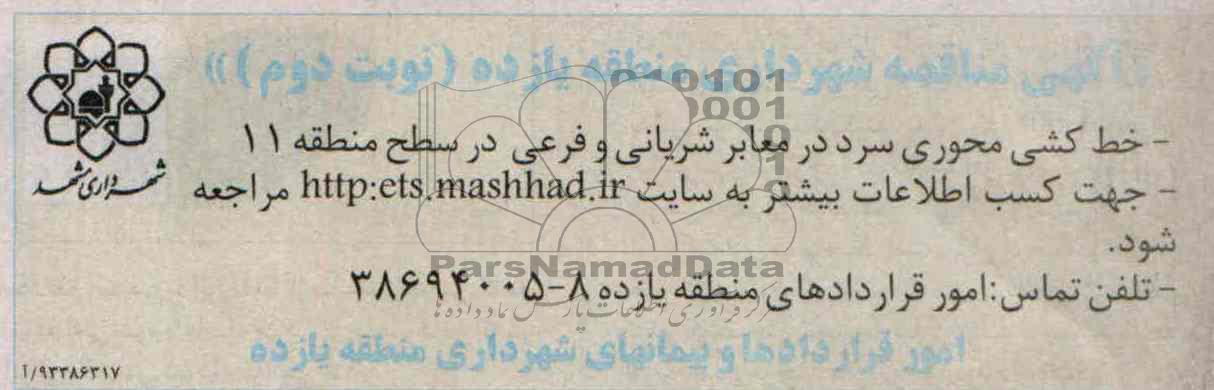 آگهی مناقصه شهرداری منطقه یازده (نوبت دوم) ))
شهرداری مشهد
- خط کشی محوری سرد در معابر شریانی و فرعی در سطح منطقه ۱۱
- جهت کسب اطلاعات بیشتر به سایت http:ets.mashhad.ir مراجعه
شود.
- تلفن تماس:امور قراردادهای منطقه یازده ۸-۳۸۶۹۴۰۰۵
امور قراردادها و پیمانهای شهرداری منطقه یازده
۹۳۳۸۶۳۱۷/آ
ParsNamadData
مرکز فرآوری اطلاعات پارس نماد داده ها